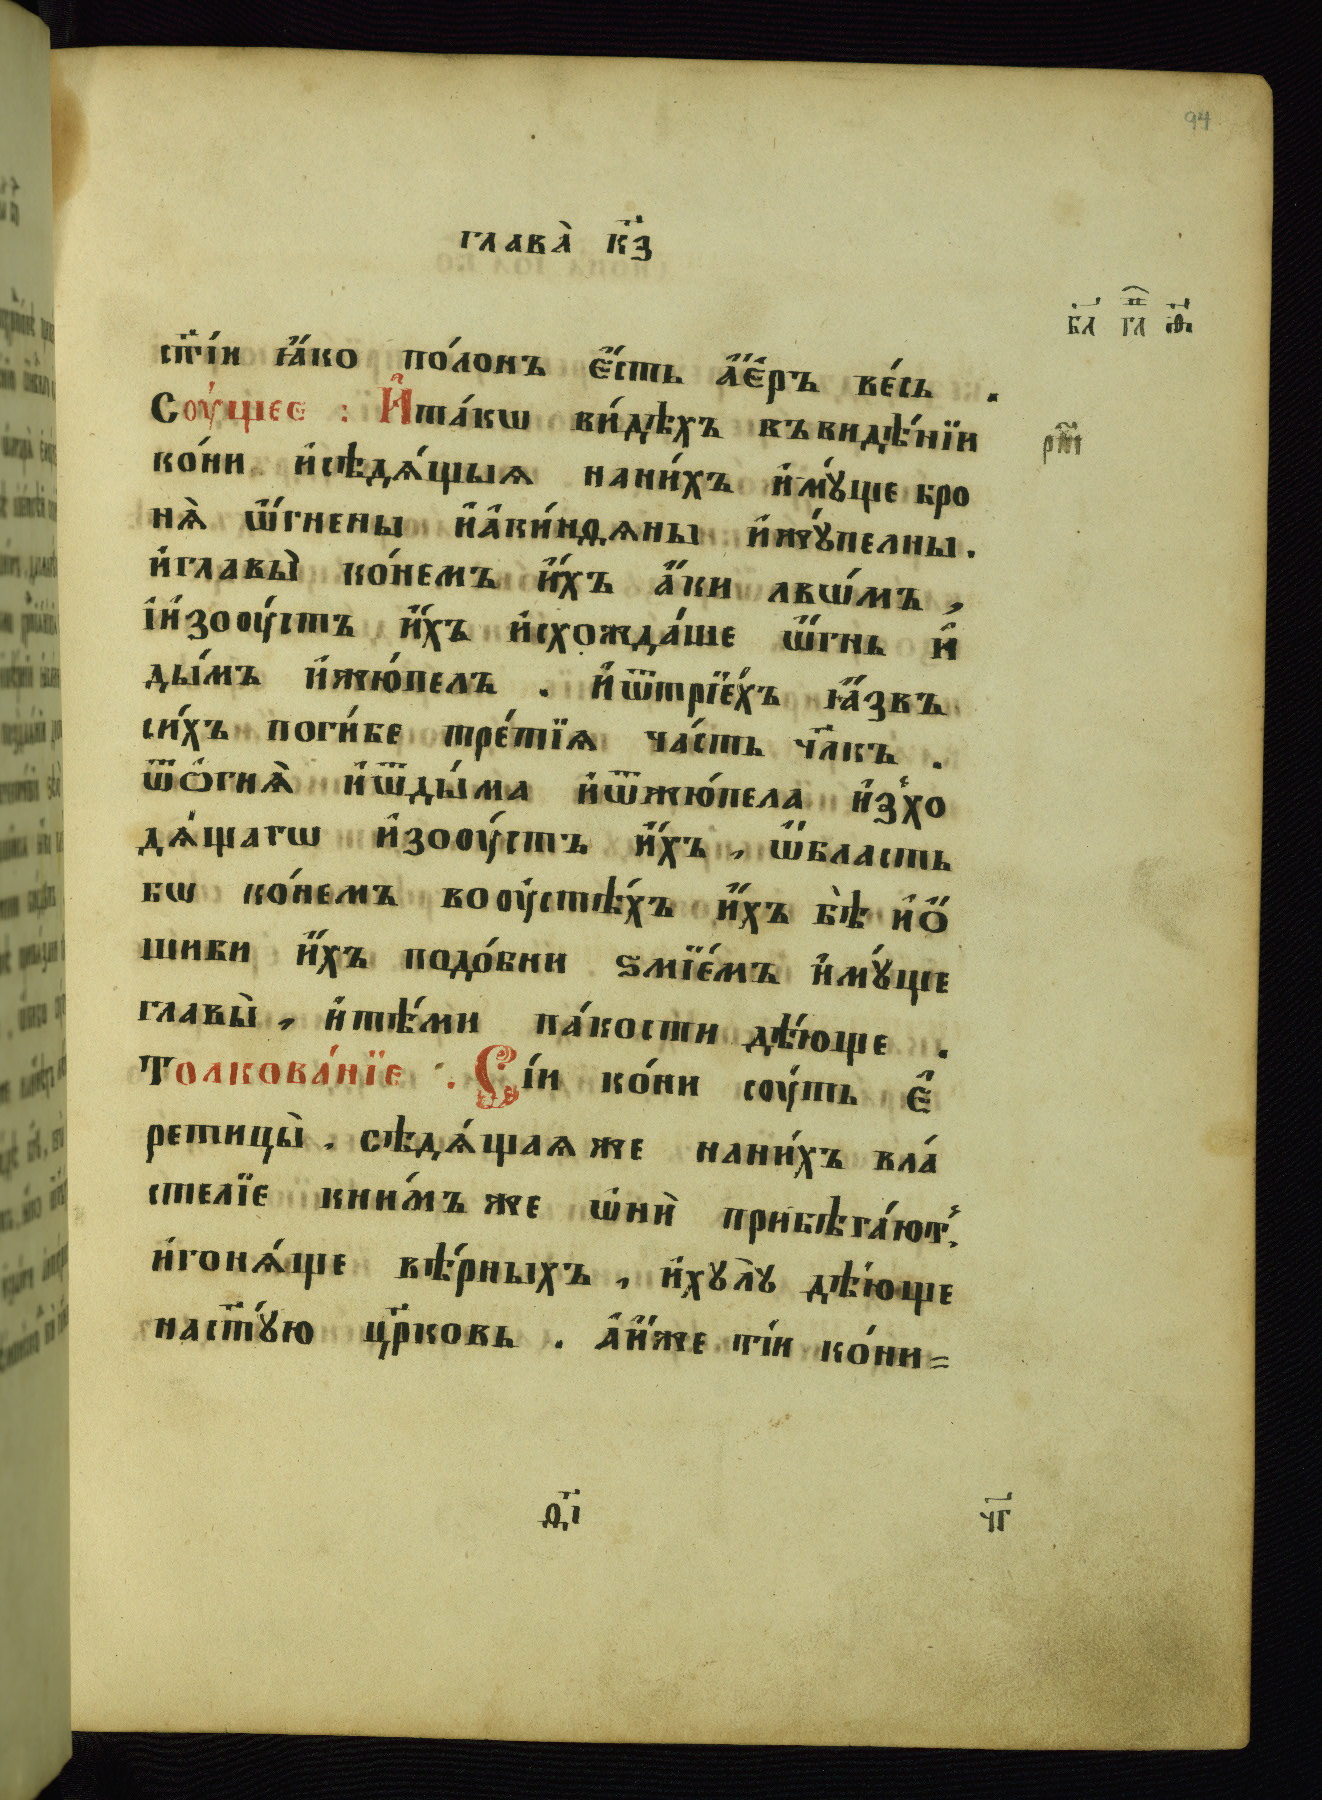 94
глава̀ к҃з
к҃а г҃л ѳ҃
ст҃і́и ꙗ҆́ко по́лонъ є҆́сть а҆є҆́ръ ве́сь .
Соу́щеє : И҆та́кѡ ви́дѣхъ въвидѣ́нїи
ко́ни и҆сѣдѧ́щыѧ нани́хъ и҆мꙋ́ще бро
нѧ̀ ѡ҆́гнены и҆а҆ки́ндѧны и҆жꙋ́пелны.
и҆главы̀ ко́немъ и҆́хъ а҆́ки лвѡ́мъ ,
і҆и҆зооу́стъ и҆́хъ и҆схожда́ше ѡ҆́гнь и҆
ды́мъ и҆жю́пелъ . и҆ѿтрїе́хъ ꙗ҆́звъ
си́хъ поги́бе тре́тїѧ ча́сть чл҃къ .
ѿѻ҆гнѧ̀ и҆ѿды́ма и҆ѿжю́пела и҆з̾хо
дѧ́щагѡ и҆зооу́стъ и҆́хъ , ѡ҆́бласть
бѡ ко́немъ вооустѣ́хъ и҆́хъ бѣ̀ и҆ѻ҆́
шиби и҆́хъ подо́бни ѕмїе́мъ и҆мꙋ́ще
главы̀ , и҆тѣ́ми па́кости дѣ́юще .
Толкова́нїе . Сі́и ко́ни соу́ть є҆
ретицы̀ . сѣдѧ́щаѧ же нани́хъ вла́
стелїе кни́мъ же ѡ҆нѝ прибѣга́ют̾.
и҆гонѧ́ще вѣ́рныхъ , и҆хꙋлꙋ̀ дѣ́юще
наст҃ꙋ́ю цр҃ковь . а҆и҆́же ті́и ко́ни=
д҃і
ч҃г